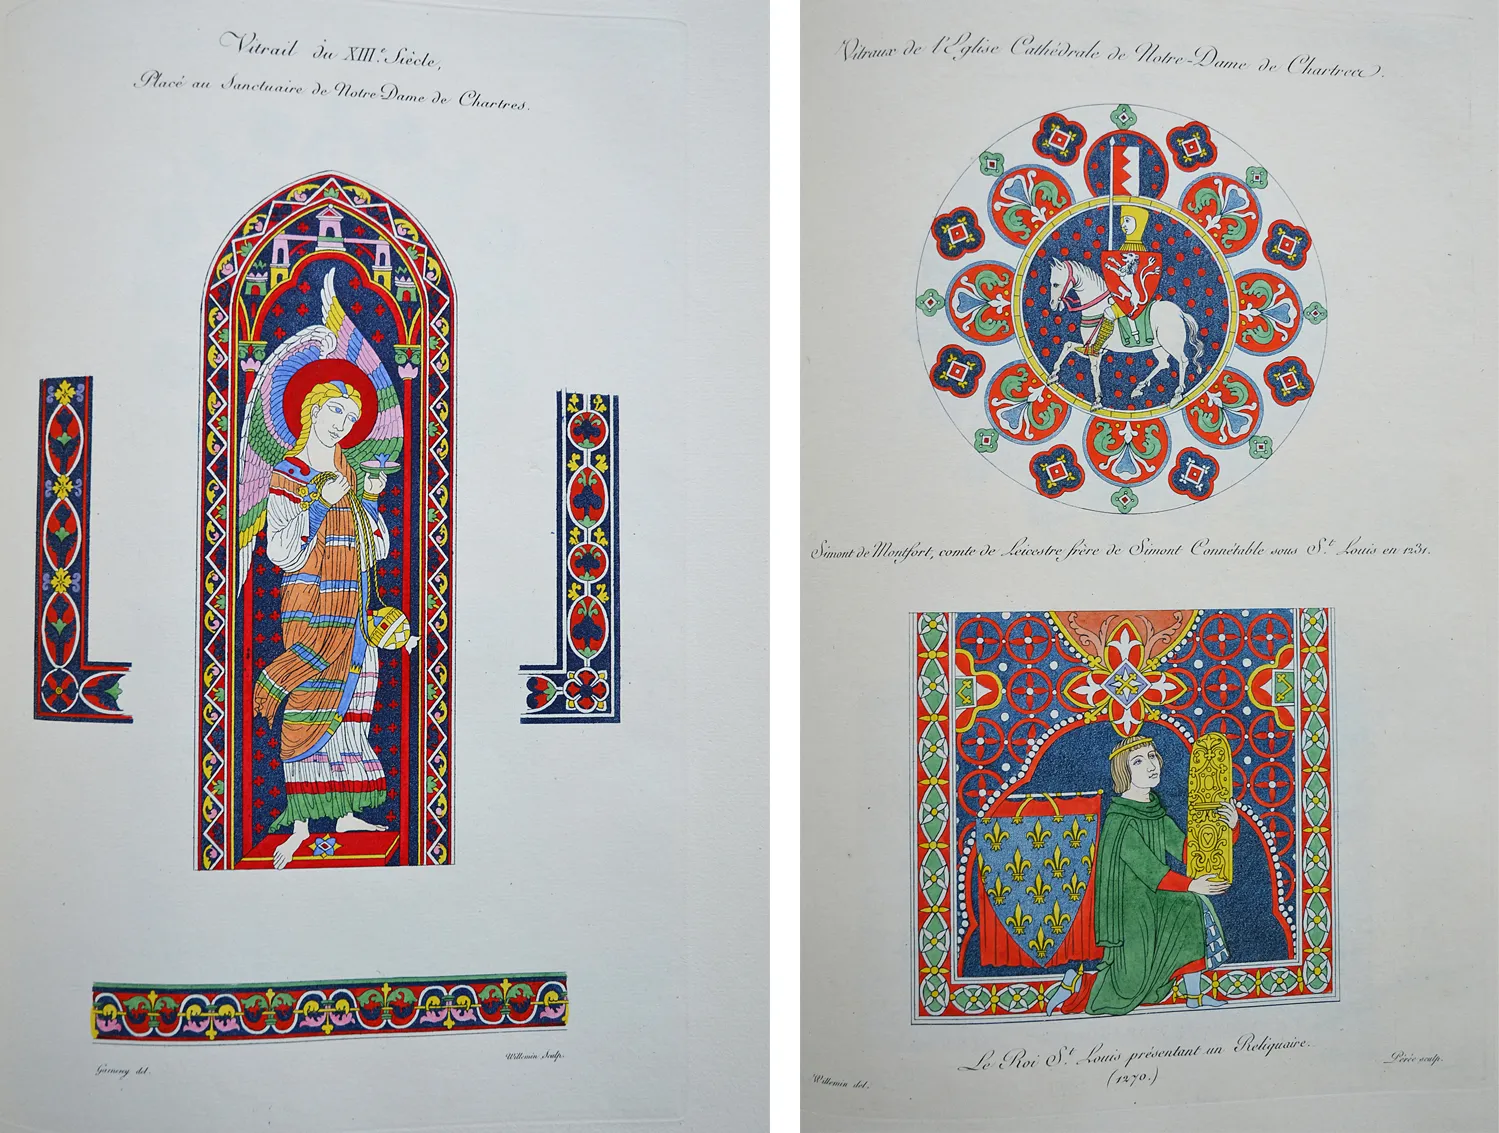 Vitrail du XIIIe. Siècle,
Placé au Sanctuaire de Notre-Dame de Chartres.
Garneray del.
Willemin Sculp.
Vitraux de l'Eglise Cathédrale de Notre-Dame de Chartres.
Simont de Montfort, comte de Leicestre frère de Simont Connétable sous St. Louis en 1231.
Le Roi St. Louis présentant un Reliquaire.
(1270.)
Willemin del.
Pérée sculp.